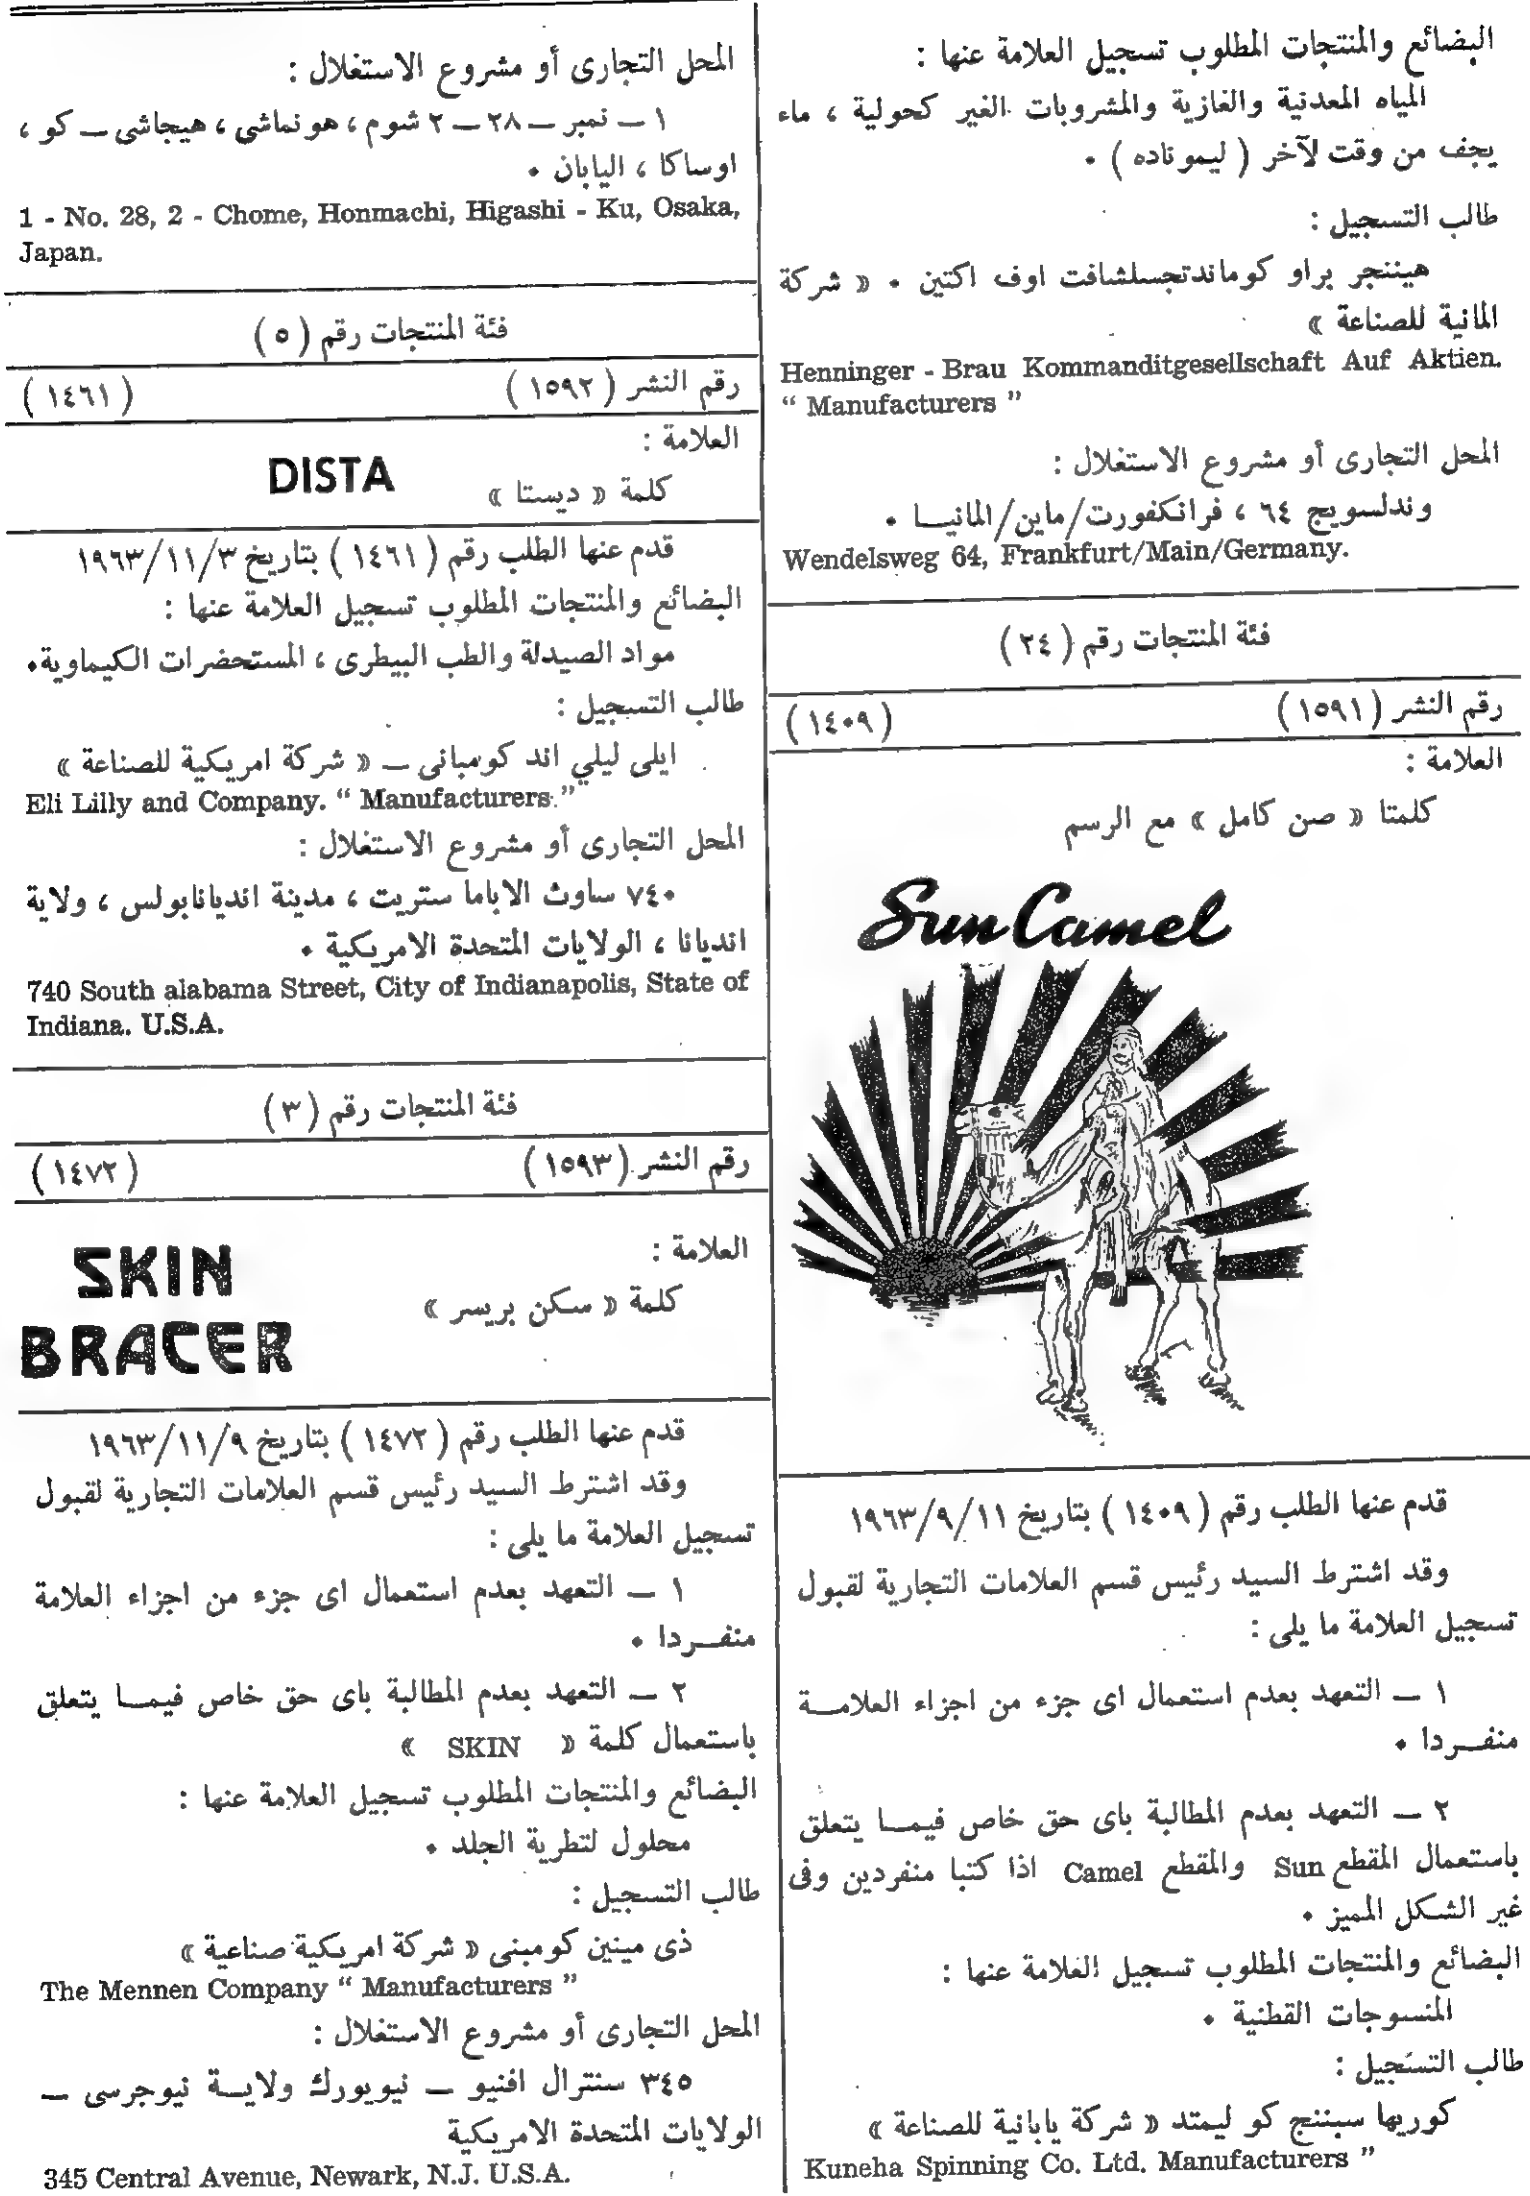 البضائع والمنتجات المطلوب تسجيل العلامة عنها :
المياه المعدنية والغازية والمشروبات الغير كحولية ، ماء
يجف من وقت لآخر ( ليموناده ) ٠
طالب التسجيل :
هيننجر براو كوماندتجسلشافت اوف اكتين ٠ « شركة
المانية للصناعة »
Henninger - Brau Kommanditgesellschaft Auf Aktien.
“ Manufacturers ”
المحل التجارى أو مشروع الاستغلال :
وندلسويج ٦٤ ، فرانكفورت/ماين/المانيــا ٠
Wendelsweg 64, Frankfurt/Main/Germany.
فئة المنتجات رقم ( ٢٤ )
رقم النشر ( ١٥٩١ ) ( ١٤٠٩ )
العلامة :
كلمتا « صن كامل » مع الرسم
Sun Camel
قدم عنها الطلب رقم ( ١٤٠٩ ) بتاريخ ١٩٦٣/٩/١١
وقد اشترط السيد رئيس قسم العلامات التجارية لقبول
تسجيل العلامة ما يلى :
١ ــ التعهد بعدم استعمال اى جزء من اجزاء العلامــة
منفــردا ٠
٢ ــ التعهد بعدم المطالبة باى حق خاص فيمــا يتعلق
باستعمال المقطع Sun والمقطع Camel اذا كتبا منفردين وفى
غير الشكل المميز ٠
البضائع والمنتجات المطلوب تسجيل العلامة عنها :
المنسوجات القطنية ٠
طالب التسجيل :
كوريها سبننج كو ليمتد « شركة يابانية للصناعة »
Kuneha Spinning Co. Ltd. Manufacturers ”
المحل التجارى أو مشروع الاستغلال :
١ ــ نمبر ــ ٢٨ ــ ٢ شوم ، هونماشى ، هيجاشى ــ كو ،
اوساكا ، اليابان ٠
1 - No. 28, 2 - Chome, Honmachi, Higashi - Ku, Osaka,
Japan.
فئة المنتجات رقم ( ٥ )
رقم النشر ( ١٥٩٢ ) ( ١٤٦١ )
العلامة :
كلمة « ديستا »
DISTA
قدم عنها الطلب رقم ( ١٤٦١ ) بتاريخ ١٩٦٣/١١/٣
البضائع والمنتجات المطلوب تسجيل العلامة عنها :
مواد الصيدلة والطب البيطرى ، المستحضرات الكيماوية٠
طالب التسجيل :
ايلى ليلي اند كومبانى ــ « شركة امريكية للصناعة »
Eli Lilly and Company. “ Manufacturers ”
المحل التجارى أو مشروع الاستغلال :
٧٤٠ ساوث الاباما ستريت ، مدينة انديانابولس ، ولاية
انديانا ، الولايات المتحدة الامريكية ٠
740 South alabama Street, City of Indianapolis, State of
Indiana. U.S.A.
فئة المنتجات رقم ( ٣ )
رقم النشر ( ١٥٩٣ ) ( ١٤٧٢ )
العلامة :
كلمة « سكن بريسر »
SKIN
BRACER
قدم عنها الطلب رقم ( ١٤٧٢ ) بتاريخ ١٩٦٣/١١/٩
وقد اشترط السيد رئيس قسم العلامات التجارية لقبول
تسجيل العلامة ما يلى :
١ ــ التعهد بعدم استعمال اى جزء من اجزاء العلامة
منفــردا ٠
٢ ــ التعهد بعدم المطالبة باى حق خاص فيمــا يتعلق
باستعمال كلمة « SKIN »
البضائع والمنتجات المطلوب تسجيل العلامة عنها :
محلول لتطرية الجلد ٠
طالب التسجيل :
ذى مينين كومبنى « شركة امريكية صناعية »
The Mennen Company “ Manufacturers ”
المحل التجارى أو مشروع الاستغلال :
٣٤٥ سنترال افنيو ــ نيويورك ولايــة نيوجرسى ــ
الولايات المتحدة الامريكية
345 Central Avenue, Newark, N.J. U.S.A.